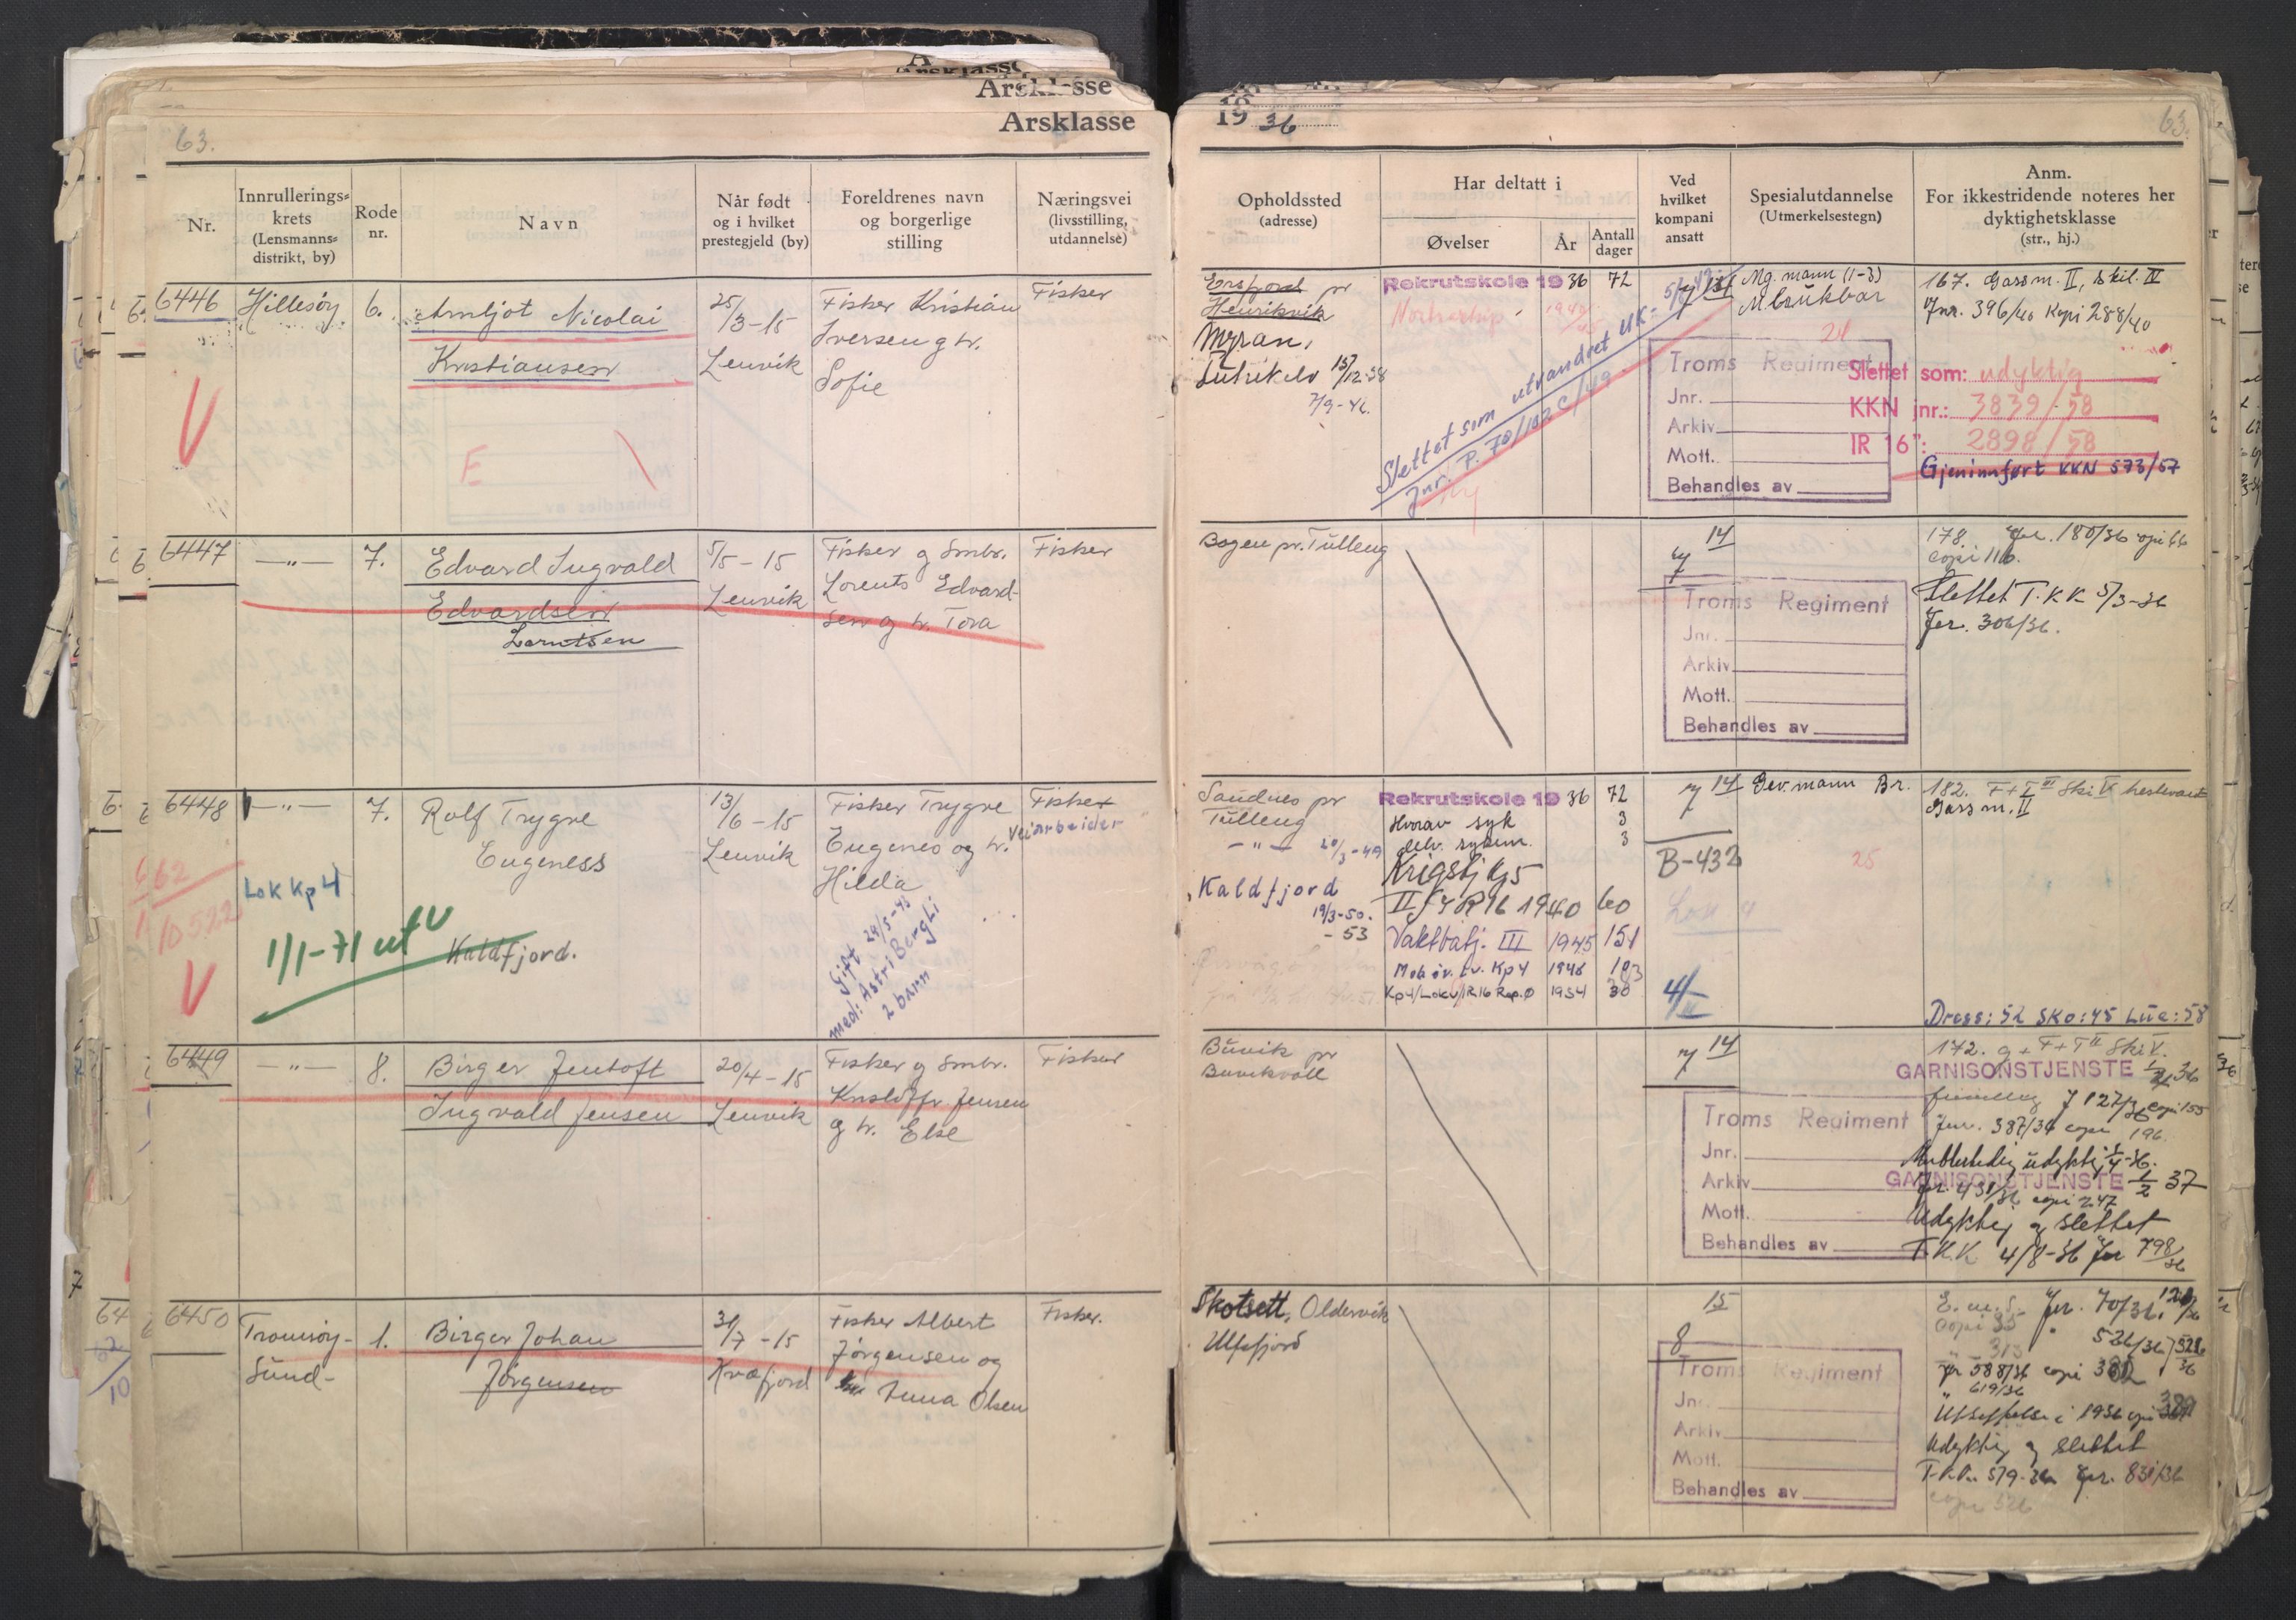 Årsklasse
Årsklasse
Årsklasse
19 36
63.
63.
Nr.
Innrullerings=
krets
(Lensmanns=
distrikt, by)
Rode
nr.
Navn
Når født
og i hvilket
prestegjeld (by)
Foreldrenes navn
og borgerlige
stilling
Næringsvei
(livsstilling,
utdannelse)
Opholdssted
(adresse)
Har deltatt i
Øvelser
År
Antall
dager
Ved
hvilket
kompani
ansatt
Spesialutdannelse
(Utmerkelsestegn)
Anm.
For ikkestridende noteres her
dyktighetsklasse
(str., hj.)
6446 Hillesøy 6. Arnljot Nicolai
Kristiansen
25/3-15
Lenvik
Fisker Kristian
Iversen g hr.
Sofie
Fisker
V
E
Ersfjord pr
Henriksvik
Myran,
15/12-38
7/9-46.
Rekrutskole 19 36 72
Slettet som utvandret UK.
Jnr. P. 70/102 C/49
Mg. mann (1-3)
M. brukbar
21
167. Gassm. II, Skil. IV
Jnr. 396/40 Kopi 288/40
Troms Regiment
Jnr.
Arkiv
Mott.
Behandles av
Slettet som: udyktig
KKN jnr.: 3839/58
IR 16": 2898/58
Gjeninnført KKN 573/57
6447 —"— 7. Edvard Ingvald
Edvardsen
Lorntsen
5/5-15
Lenvik
Fisker g Smbr.
Lorents Edvard-
sen g hr. Tora
Fisker
Bogen pr. Tulleng
14
7
178. Jnr. 180/36 copi 66
copi 116.
Slettet T.K.K. 5/3-36
Jnr. 306/36.
Troms Regiment
Jnr.
Arkiv
Mott.
Behandles av
6448 —"— 7. Rolf Trygve
Eugeness
13/6-15
Lenvik
Fisker Trygve
Eugenes og hr.
Hilda
Fisker
Veiarbeider
662
10522
V
Lok Kp 4
1/1-71 ut V
Kaldfjord.
Gift 24/5-45
med: Astri Bergli
2 barn
Sandnes pr
Tulleng
—"— 20/3-49
Kaldfjord
19/3-50.
-53
Rekrutskole 19 36 72
Hvorav syk 3
3
II/IR 16 1940 60
Vaktbatj. III 1945 151
Mob øv. Lv. Kp 4 1946 103
Kp 4/Lokv/IR16 Rep.Ø 1954 30
14
7
B-432
4/II
Gev. mann Br.
25
182. F+T III Ski V
Gassm. II
Dress: 52 Sko: 45 Lue: 58
6449 —"— 8. Birger Jentoft
Ingvald Jensen
20/4-15
Lenvik
Fisker g Smbr.
Kristoffr Jensen
g hr. Else
Fisker
Buvik pr
Buvikvoll
14
7
172. g + F+T II Ski V.
GARNISONSTJENSTE 36
J 127/36 copi 155
Jnr. 387/36 copi 196.
Midlertidig udyktig 1/4-36.
GARNISONSTJENSTE 1/2 37
Jnr. 431/36 copi 247
Udyktig g slettet
T.K.K. 4/8-36 Jnr 798/36
Troms Regiment
Jnr.
Arkiv
Mott.
Behandles av
6450 Tromsøy-
Sund- 1. Birger Johan
Jørgensen
31/7-15
Kvæfjord
Fisker Albert
Jørgensen og
Anna Olsen
Fisker.
Skotsett, Oldervik
Ulfsfjord
15
8
E.m.S. Jnr. 70/36,
copi 35 " 526/36
" 313
Jnr 588/36 copi 382
" 619/36
Utsettelse i 1936 copi 389
Udyktig g slettet
T.K.K. 5/9-36 Jnr. 831/36
copi 526
Troms Regiment
Jnr.
Arkiv
Mott.
Behandles av